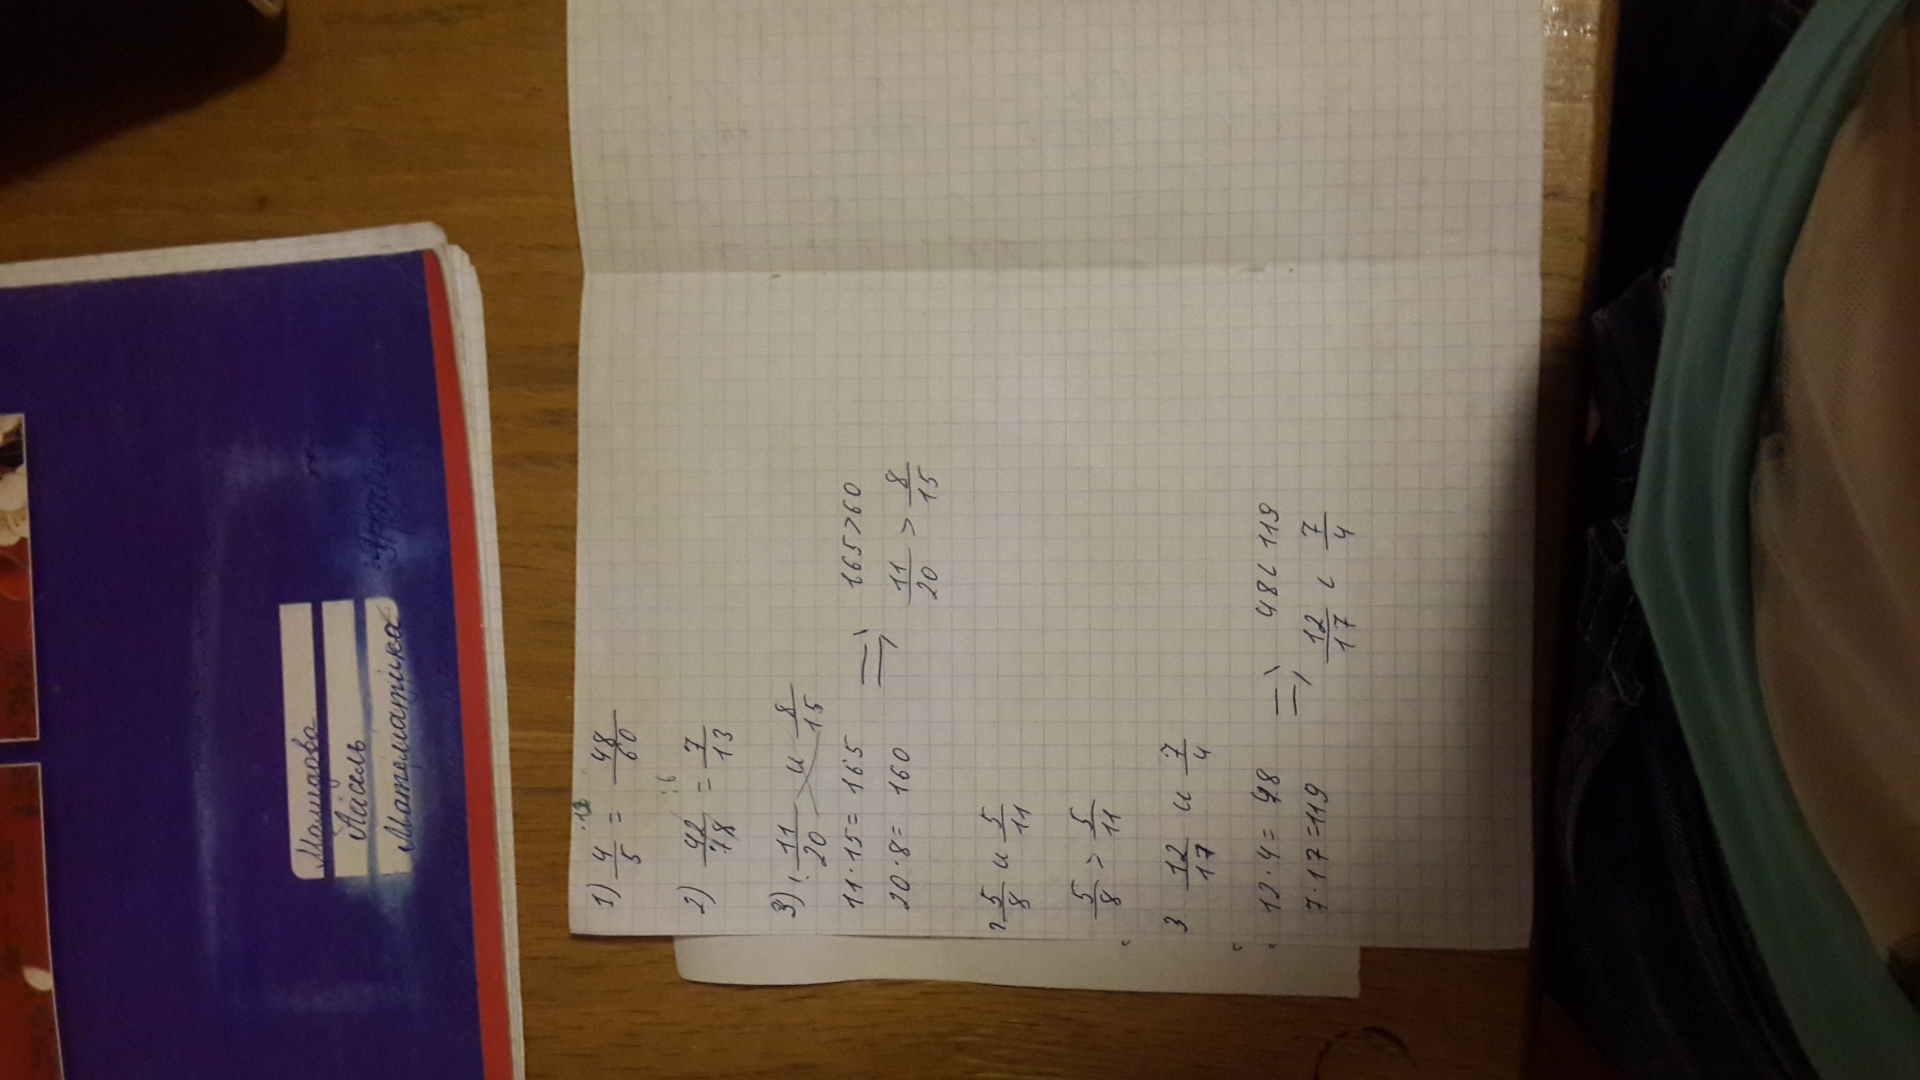 Мамидова
Айсель
Математика
1) 4/5 = 48/60 ·12
2) 42/78 = 7/13 :6
3) 1. 11/20 и 8/15
11·15=165 => 165>60
20·8= 160 11/20 > 8/15
2 5/8 и 5/11
5/8 > 5/11
3 12/17 и 7/4
12·4= 48 => 48<119
7·17=119 12/17 < 7/4